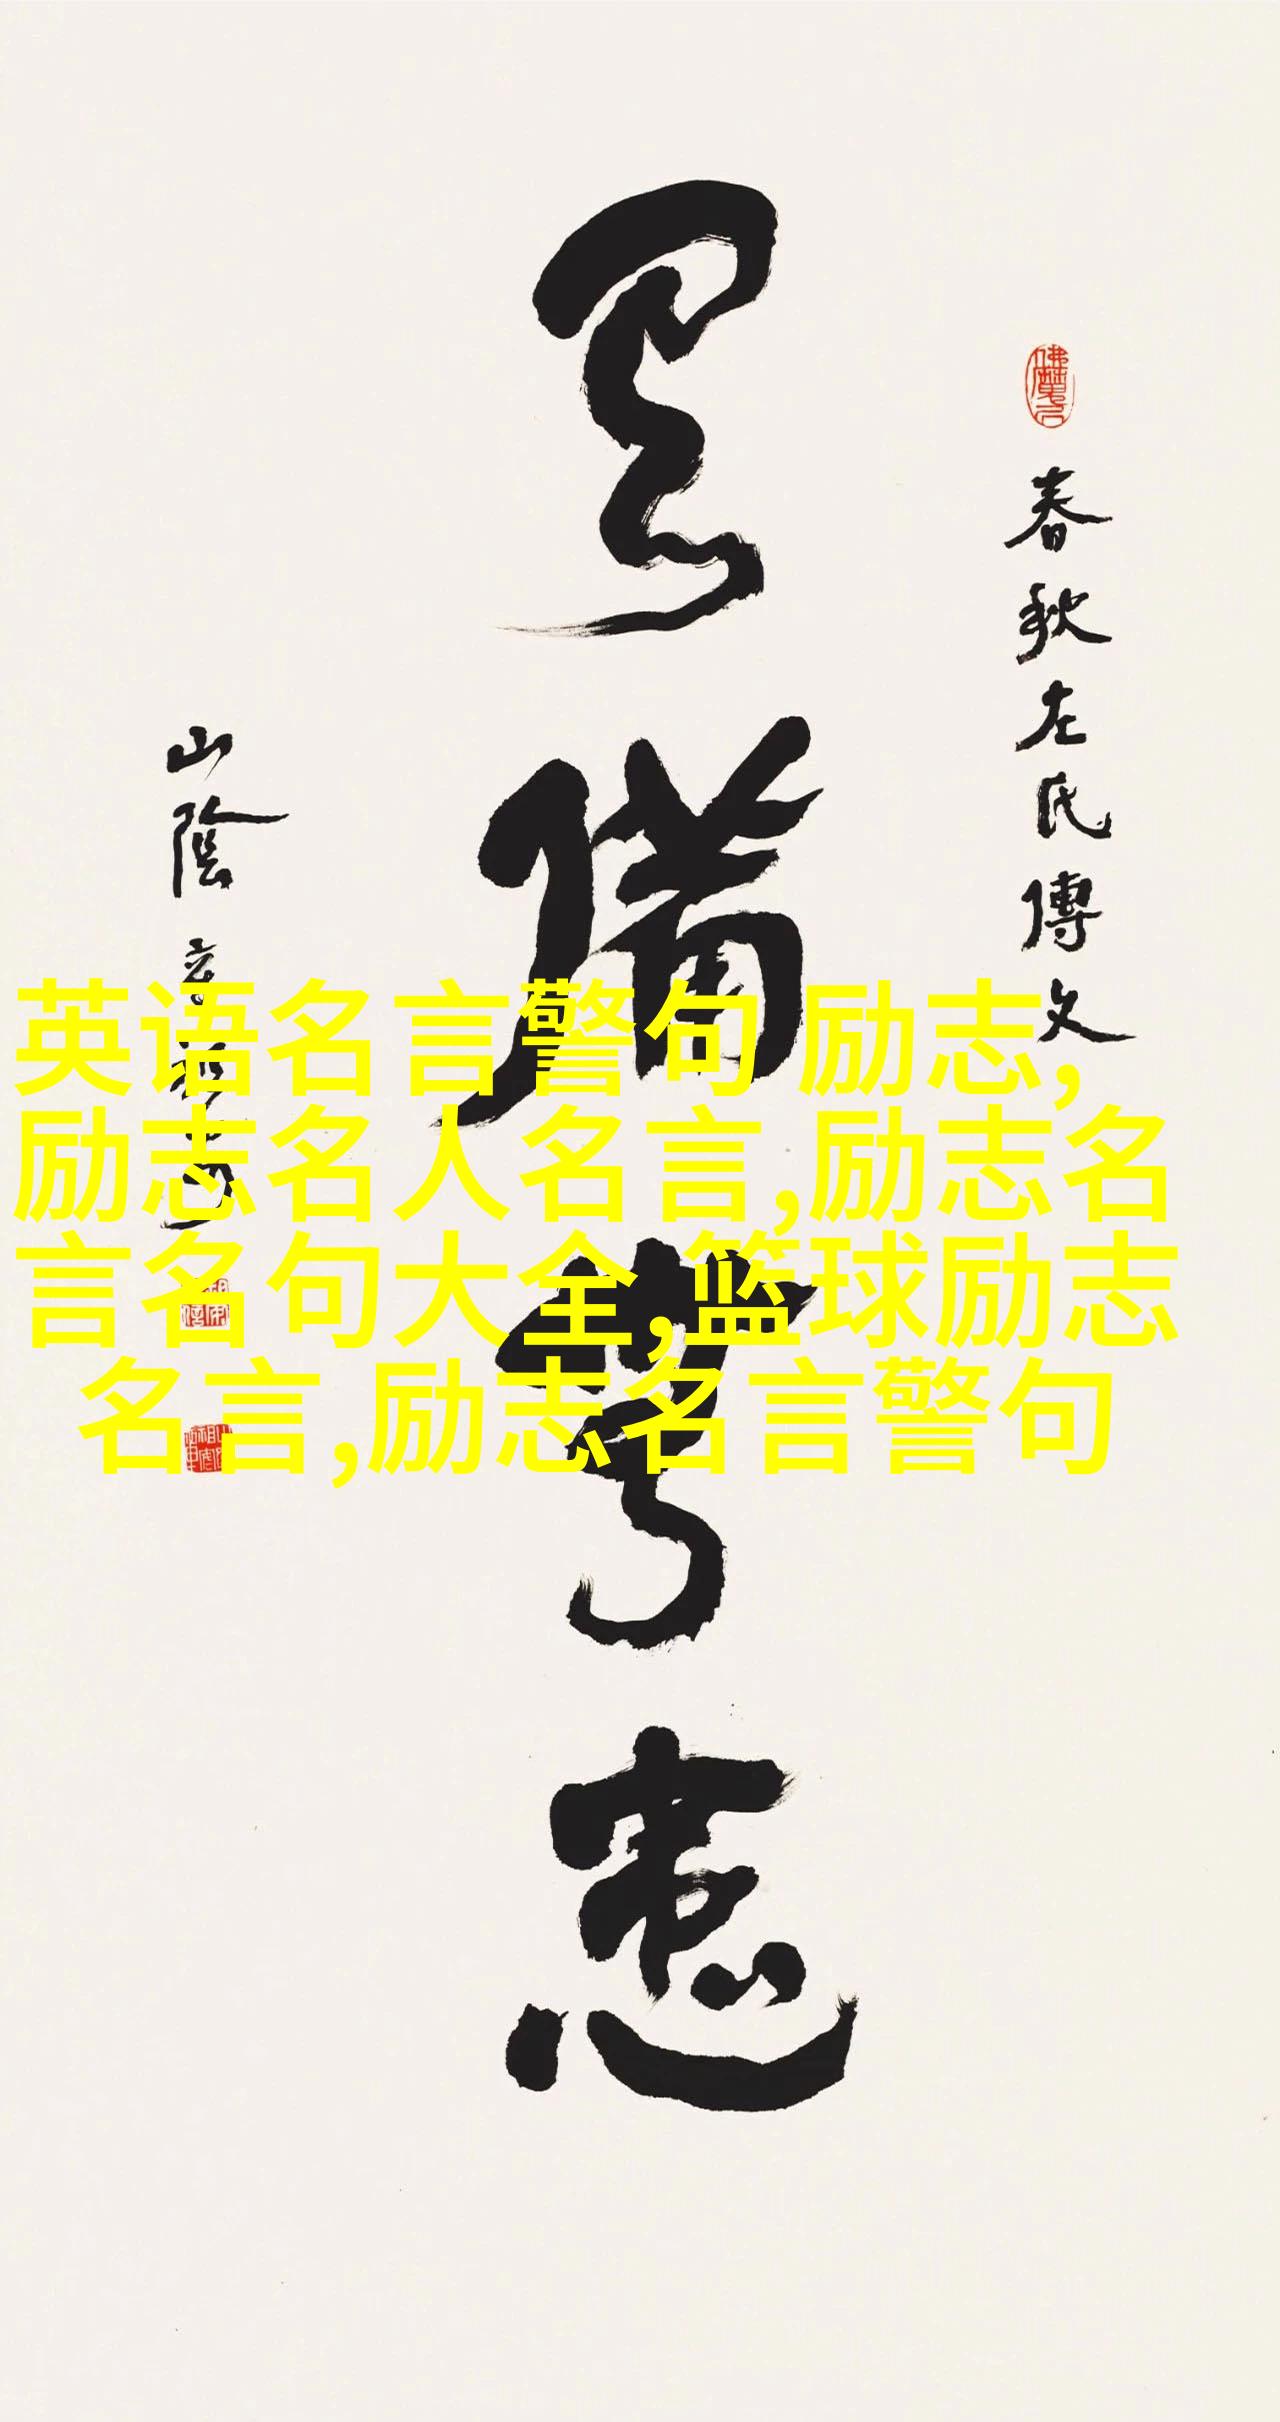 春秋左氏傳文
備患
山陰
英语名言警句 励志,
励志名人名言,励志名
言名句大全,篮球励志
名言,励志名言警句